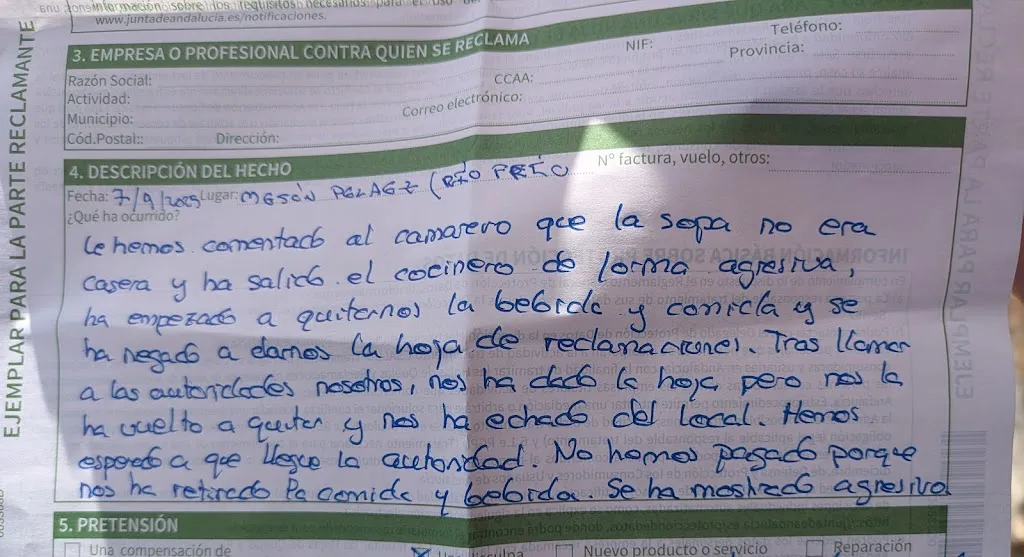 información sobre los requisitos necesarios para el uso de
www.juntadeandalucia.es/notificaciones.
EJEMPLAR PARA LA PARTE RECLAMANTE
3. EMPRESA O PROFESIONAL CONTRA QUIEN SE RECLAMA
NIF: Teléfono:
Razón Social: CCAA: Provincia:
Actividad:
Municipio: Correo electrónico:
Cód.Postal:: Dirección:
4. DESCRIPCIÓN DEL HECHO
Nº factura, vuelo, otros:
Fecha: 7/9/2025 Lugar: MESÓN
¿Qué ha ocurrido?
Le hemos comentado al camarero que la sopa no era
casera y ha salido el cocinero de forma agresiva,
ha empezado a quitarnos la bebida y comida y se
ha negado a darnos la hoja de reclamaciones. Tras llamar
a las autoridades nosotros, nos ha dado la hoja pero nos la
ha vuelto a quitar y nos ha echado del local. Hemos
esperado a que llegue la autoridad. No hemos pagado porque
nos ha retirado la comida y bebida. Se ha mostrado agresivo
5. PRETENSIÓN
Una compensación de
Una disculpa
Nuevo producto o servicio
Reparación